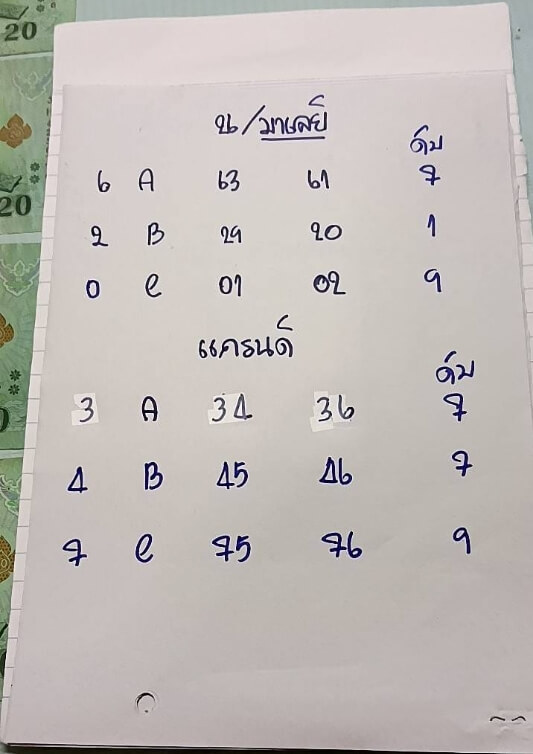 น/มาเลย์
ดับ
6 A 63 61 7
2 B 29 20 1
0 C 01 02 9
แกรนด์
ดับ
3 A 34 36 7
4 B 45 46 7
7 C 75 76 9
20
20